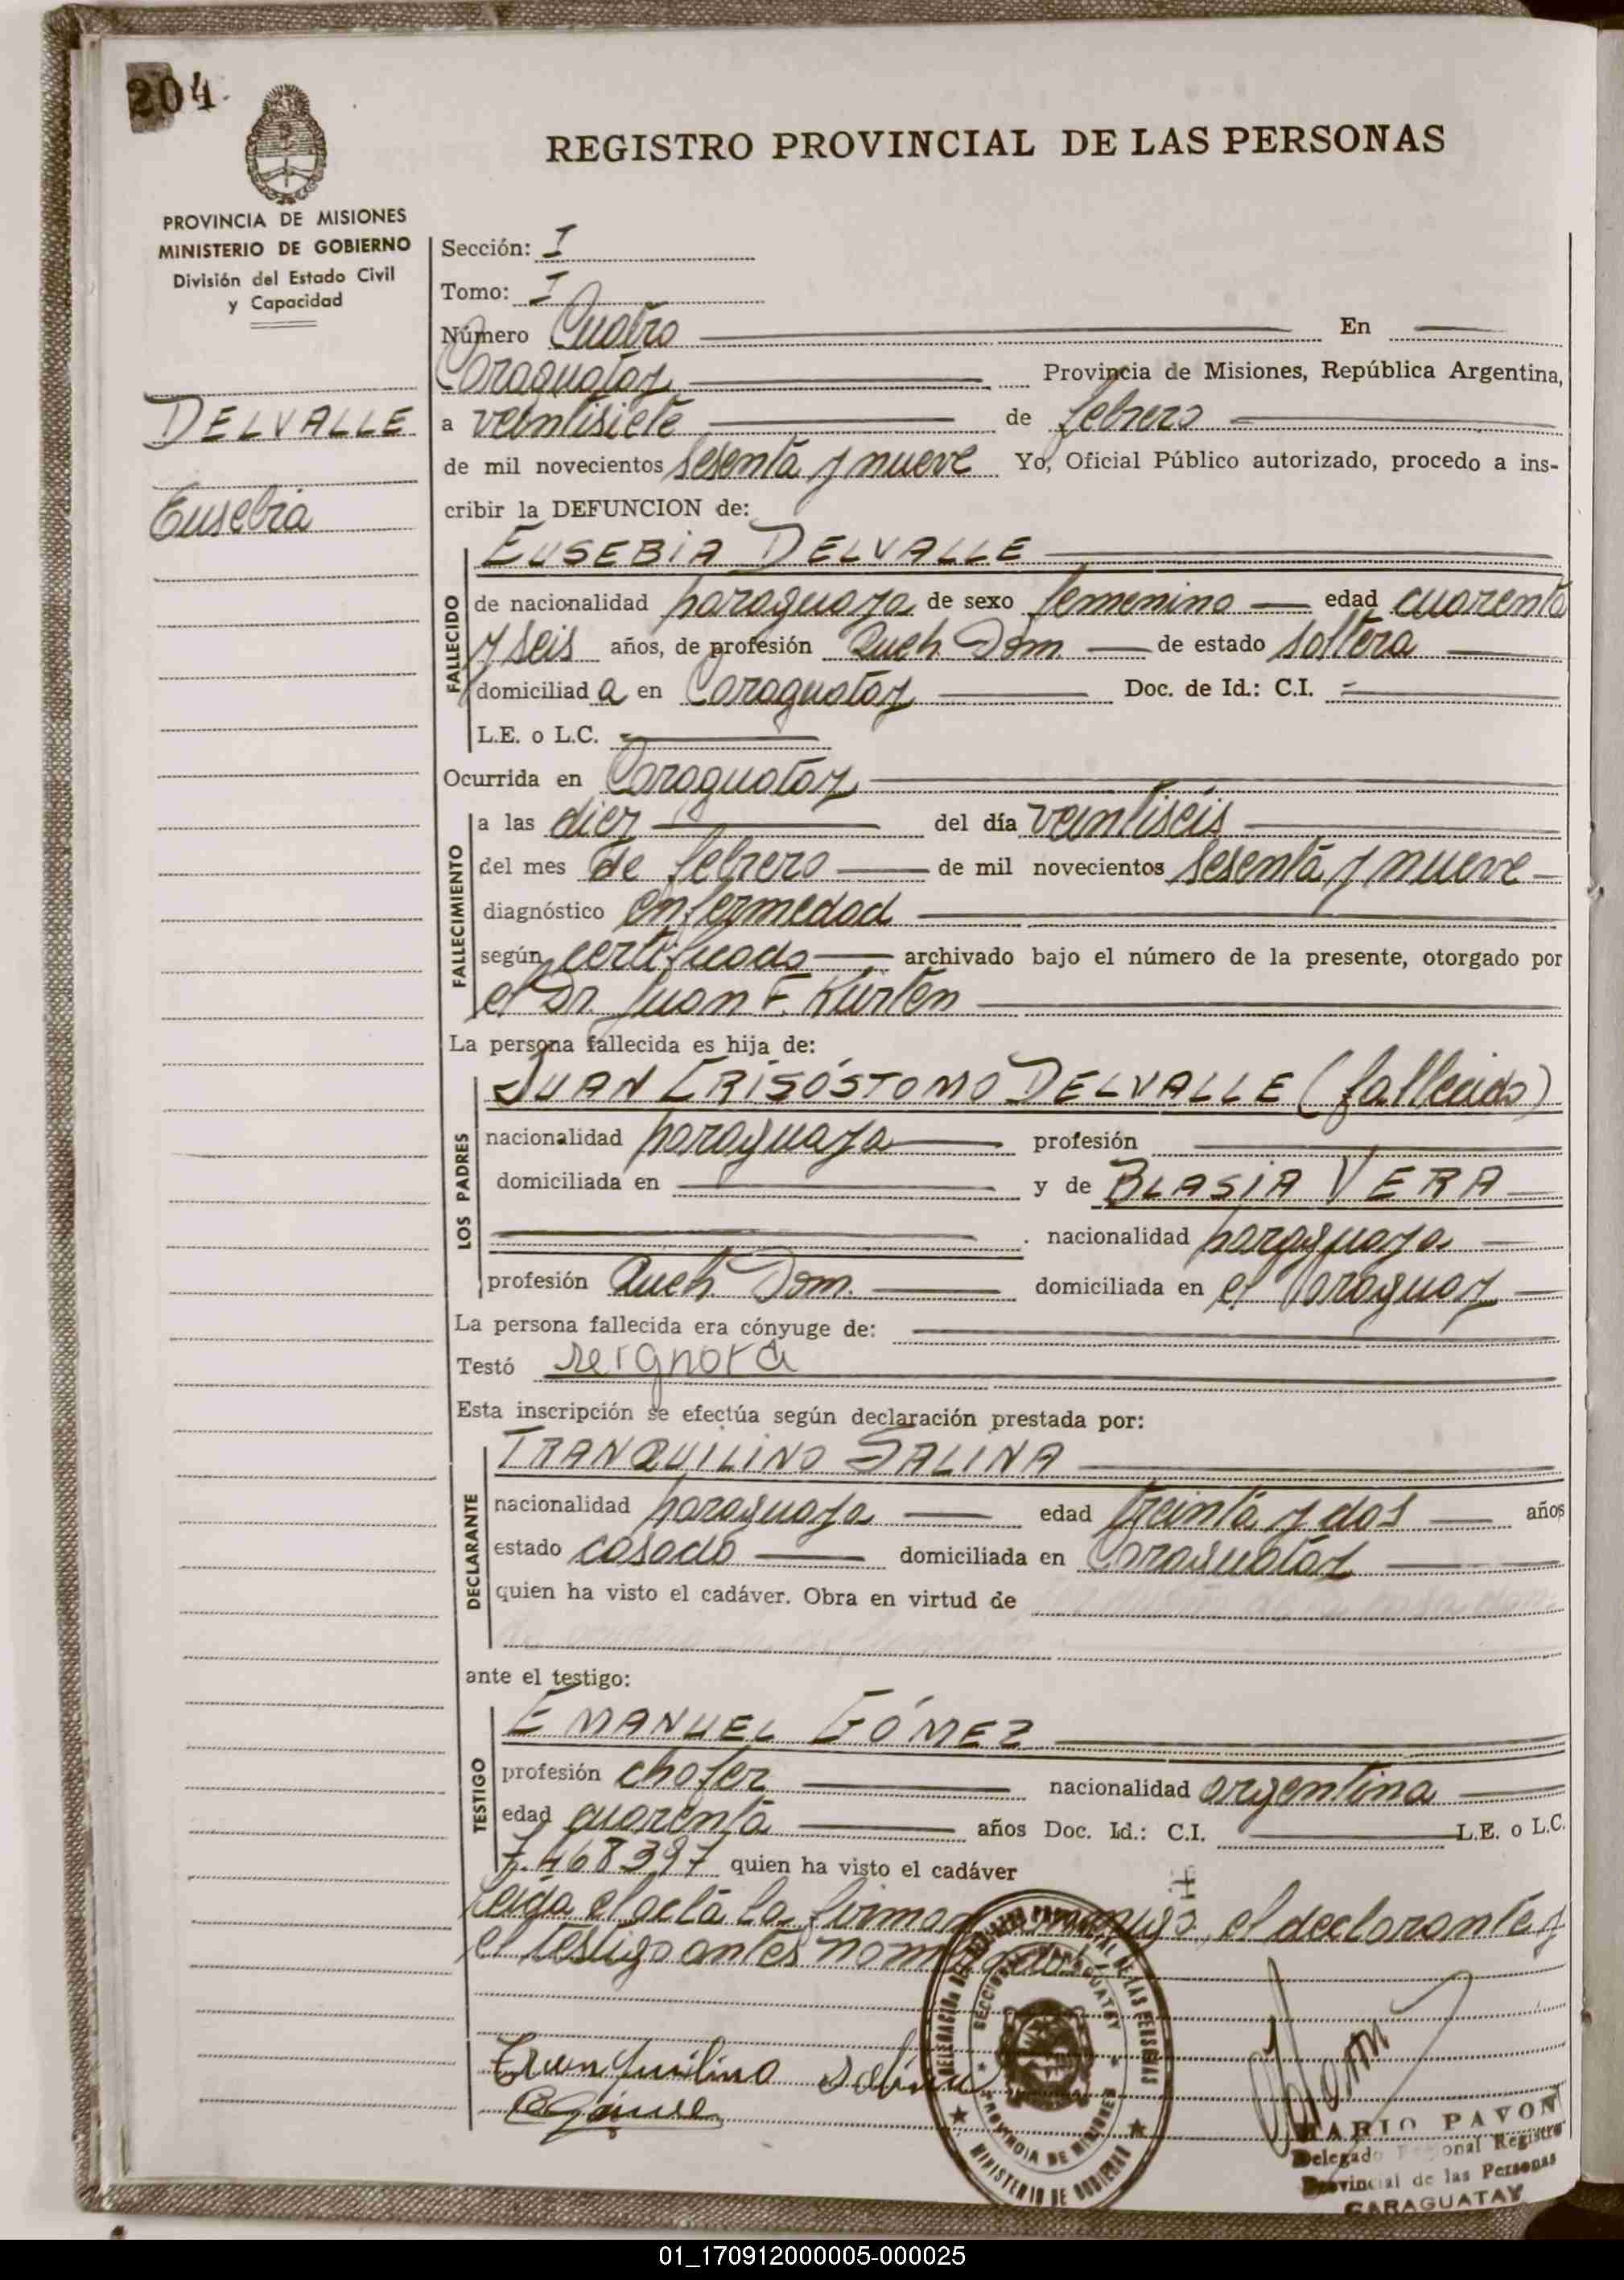 204
PROVINCIA DE MISIONES
MINISTERIO DE GOBIERNO
División del Estado Civil
y Capacidad
DELVALLE
Eusebia
REGISTRO PROVINCIAL DE LAS PERSONAS
Sección: I
Tomo: I
Número Cuatro En
Caraguatay Provincia de Misiones, República Argentina,
a veintisiete de febrero
de mil novecientos sesenta y nueve Yo, Oficial Público autorizado, procedo a ins-
cribir la DEFUNCION de:
FALLECIDO
EUSEBIA DELVALLE
de nacionalidad paraguaya de sexo femenino edad cuarenta
y seis años, de profesión Queh. Dom de estado soltera
domiciliada en Caraguatay Doc. de Id.: C.I.
L.E. o L.C.
Ocurrida en Caraguatay
FALLECIMIENTO
a las diez del día veintiseis
del mes de febrero de mil novecientos sesenta y nueve
diagnóstico enfermedad
según certificado archivado bajo el número de la presente, otorgado por
el Dr. Juan F. Kürten
La persona fallecida es hija de:
LOS PADRES
JUAN CRISÓSTOMO DELVALLE (fallecido)
nacionalidad paraguaya profesión
domiciliada en y de BLASIA VERA
. nacionalidad paraguaya
profesión Queh. Dom. domiciliada en el Paraguay
La persona fallecida era cónyuge de:
Testó se ignora
Esta inscripción se efectúa según declaración prestada por:
DECLARANTE
TRANQUILINO SALINA
nacionalidad paraguaya edad treinta y dos años
estado casado domiciliada en Caraguatay
quien ha visto el cadáver. Obra en virtud de
ante el testigo:
TESTIGO
EMANUEL GÓMEZ
profesión chofer nacionalidad argentina
edad quarenta años Doc. Id.: C.I. L.E. o L.C.
7.468397 quien ha visto el cadáver
Leida el acta la firman conmigo, el declarante y
el testigo antes nombrados
DELEGACIÓN DEL REGISTRO PROVINCIAL DE LAS PERSONAS
SECCIONAL CARAGUATAY
PROVINCIA DE MISIONES
MINISTERIO DE GOBIERNO
Tranquilino Salina
MARIO PAVON
Delegado Regional Registro
Provincial de las Personas
CARAGUATAY
01_170912000005-000025